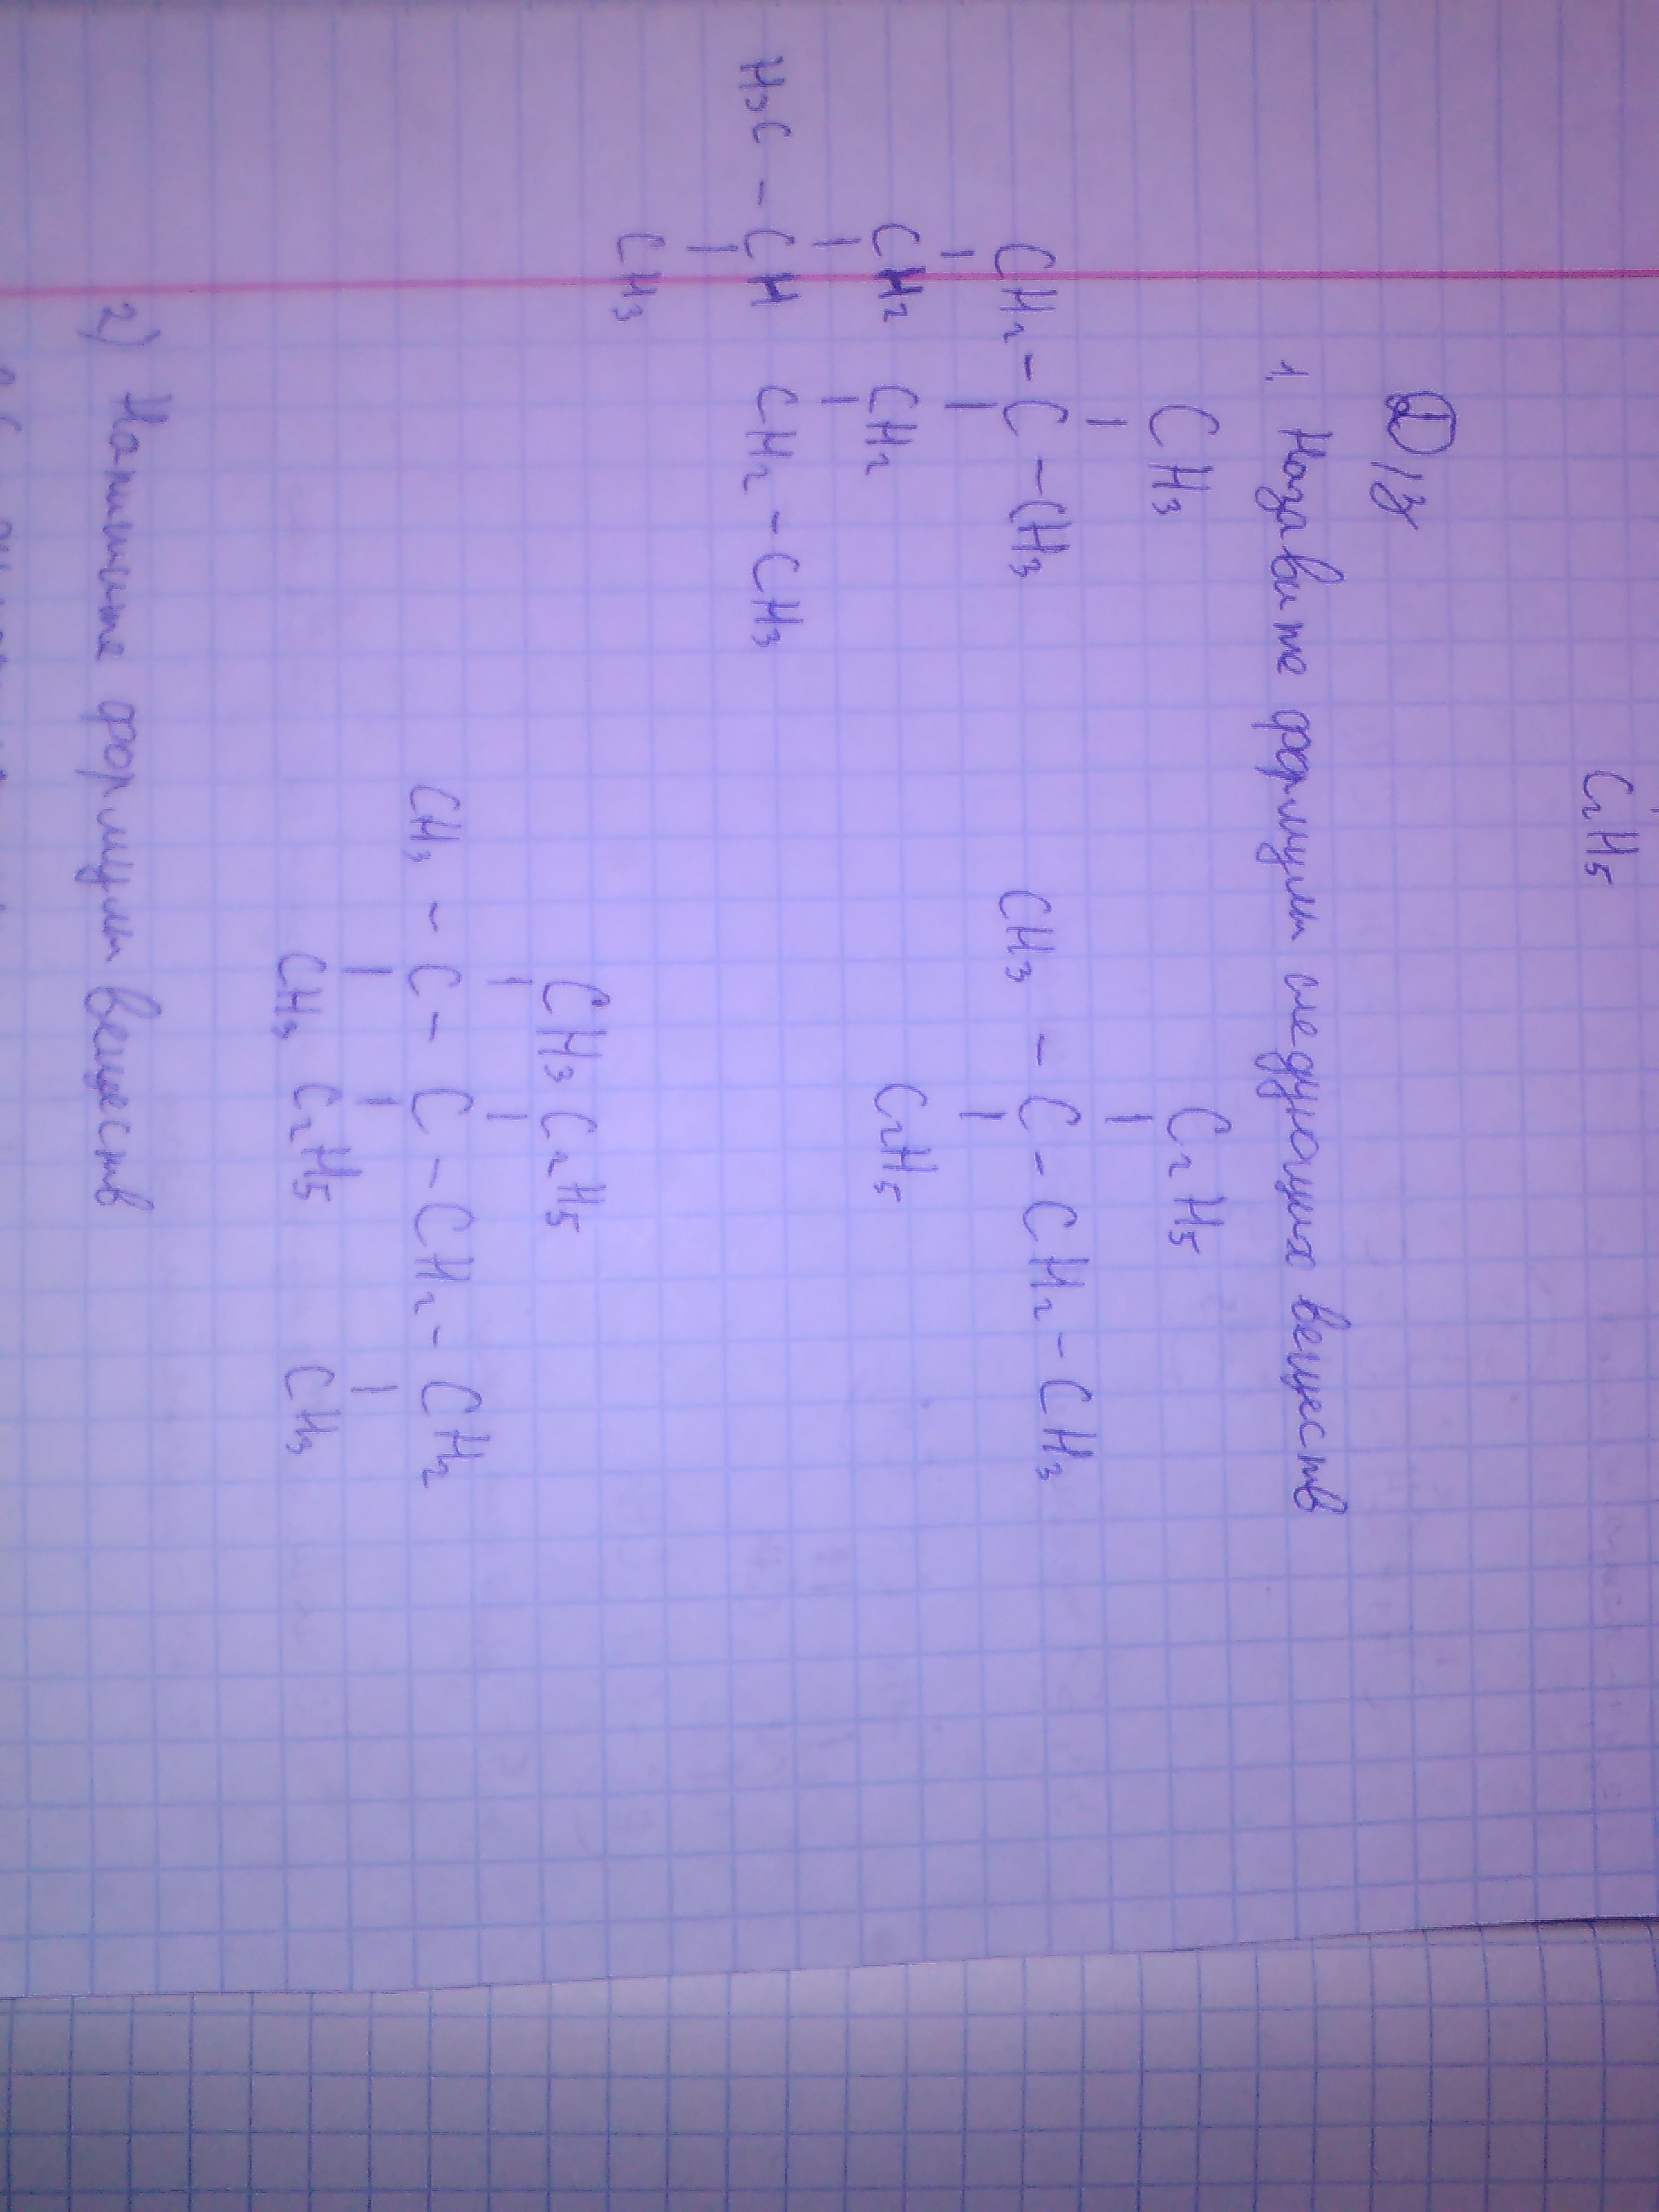 C₂H₅
Д/з
1. Назовите формулы следующих веществ
CH₃ C₂H₅
CH₂ - C - CH₃ CH₃ - C - CH₂ - CH₃
CH₂ CH₂ C₂H₅
H₃C - CH CH₂ - CH₃
CH₃
CH₃ C₂H₅
CH₃ - C - C - CH₂ - CH₂
CH₃ C₂H₅ CH₃
2) Напишите формулы веществ